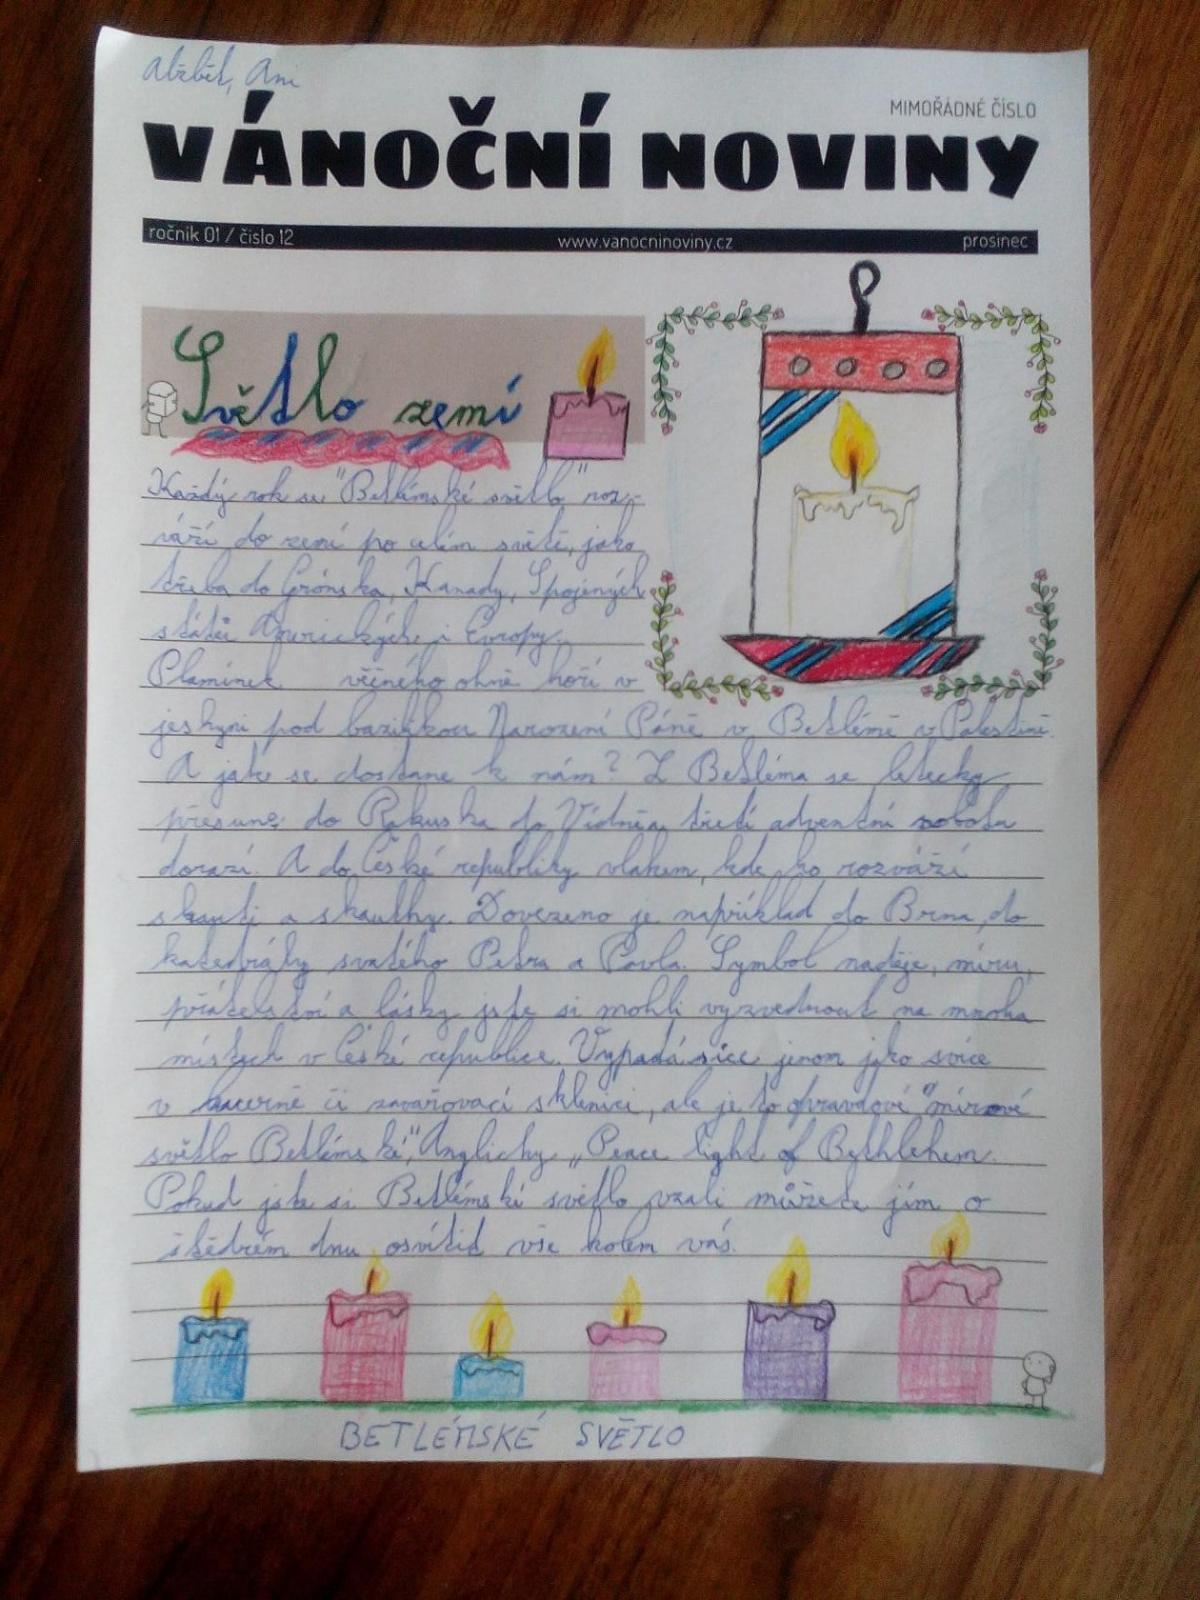 Alžbět, Ani
MIMOŘÁDNÉ ČÍSLO
VÁNOČNÍ NOVINY
ročník 01 / číslo 12 www.vanocninoviny.cz prosinec
Světlo zemí
Každý rok se "Betlémské světlo" roz-
váží do zemí po celém světě, jako
třeba do Grónska, Kanady, Spojených
států Amerických i Evropy.
Plamínek věčného ohně hoří v
jeskyni pod bazilikou Narození Páně v Betlémě v Palestině.
A jak se dostane k nám? Z Betléma se letecky
přesune do Rakouska do Vídně, třetí adventní sobotu
dorazí. A do České republiky vlakem, kde ho rozváží
skauti a skautky. Dovezeno je například do Brna, do
katedrály svatého Petra a Pavla. Symbol naděje, míru,
přátelství a lásky jste si mohli vyzvednout na mnoha
místech v České republice. Vypadá sice jenom jako svíce
v lucerně či zavařovací sklenici, ale je to opravdové "mírové
světlo Betlémské", Anglicky „Peace light of Bethlehem.
Pokud jste si Betlémské světlo vzali můžete jím o
štědrém dnu osvítit vše kolem vás.
BETLÉMSKÉ SVĚTLO